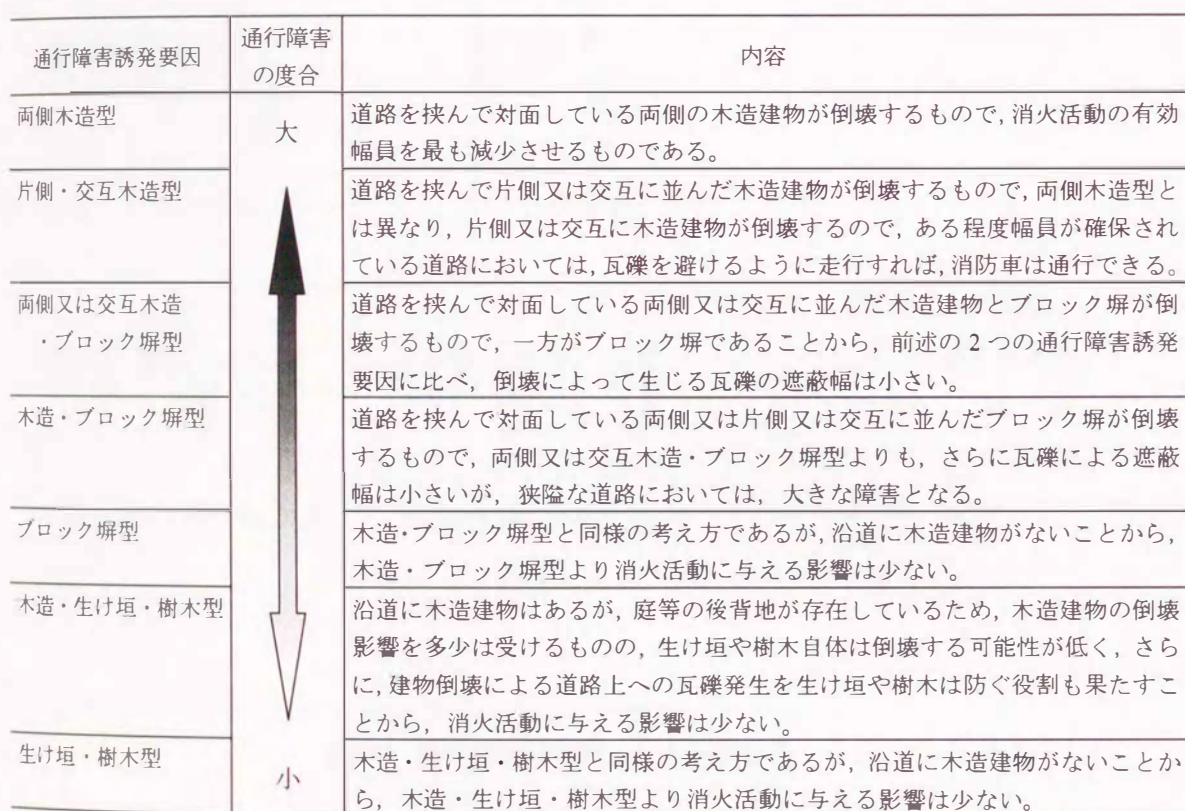 通行障害誘発要因
通行障害
の度合
内容
両側木造型
大
道路を挟んで対面している両側の木造建物が倒壊するもので,消火活動の有効
幅員を最も減少させるものである。
片側・交互木造型
道路を挟んで片側又は交互に並んだ木造建物が倒壊するもので,両側木造型と
は異なり,片側又は交互に木造建物が倒壊するので,ある程度幅員が確保され
ている道路においては,瓦礫を避けるように走行すれば,消防車は通行できる。
両側又は交互木造
・ブロック塀型
道路を挟んで対面している両側又は交互に並んだ木造建物とブロック塀が倒
壊するもので,一方がブロック塀であることから,前述の2つの通行障害誘発
要因に比べ,倒壊によって生じる瓦礫の遮蔽幅は小さい。
木造・ブロック塀型
道路を挟んで対面している両側又は片側又は交互に並んだブロック塀が倒壊
するもので,両側又は交互木造・ブロック塀型よりも,さらに瓦礫による遮蔽
幅は小さいが,狭隘な道路においては,大きな障害となる。
ブロック塀型
木造・ブロック塀型と同様の考え方であるが,沿道に木造建物がないことから,
木造・ブロック塀型より消火活動に与える影響は少ない。
木造・生け垣・樹木型
沿道に木造建物はあるが,庭等の後背地が存在しているため,木造建物の倒壊
影響を多少は受けるものの,生け垣や樹木自体は倒壊する可能性が低く,さら
に,建物倒壊による道路上への瓦礫発生を生け垣や樹木は防ぐ役割も果たすこ
とから,消火活動に与える影響は少ない。
生け垣・樹木型
小
木造・生け垣・樹木型と同様の考え方であるが,沿道に木造建物がないことか
ら,木造・生け垣・樹木型より消火活動に与える影響は少ない。